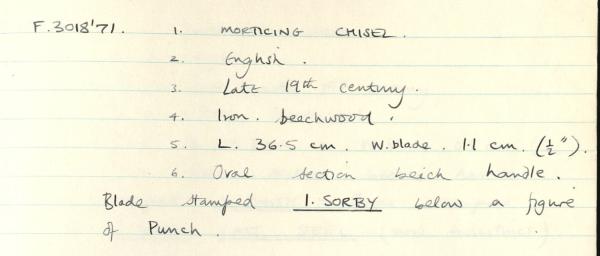 F.3018'71. 1. MORTICING CHISEL.
2. English.
3. Late 19th century.
4. Iron. beechwood.
5. L. 36.5 cm. W. blade. 1.1 cm. (½").
6. Oval section beech handle.
Blade stamped I. SORBY below a figure
of Punch.